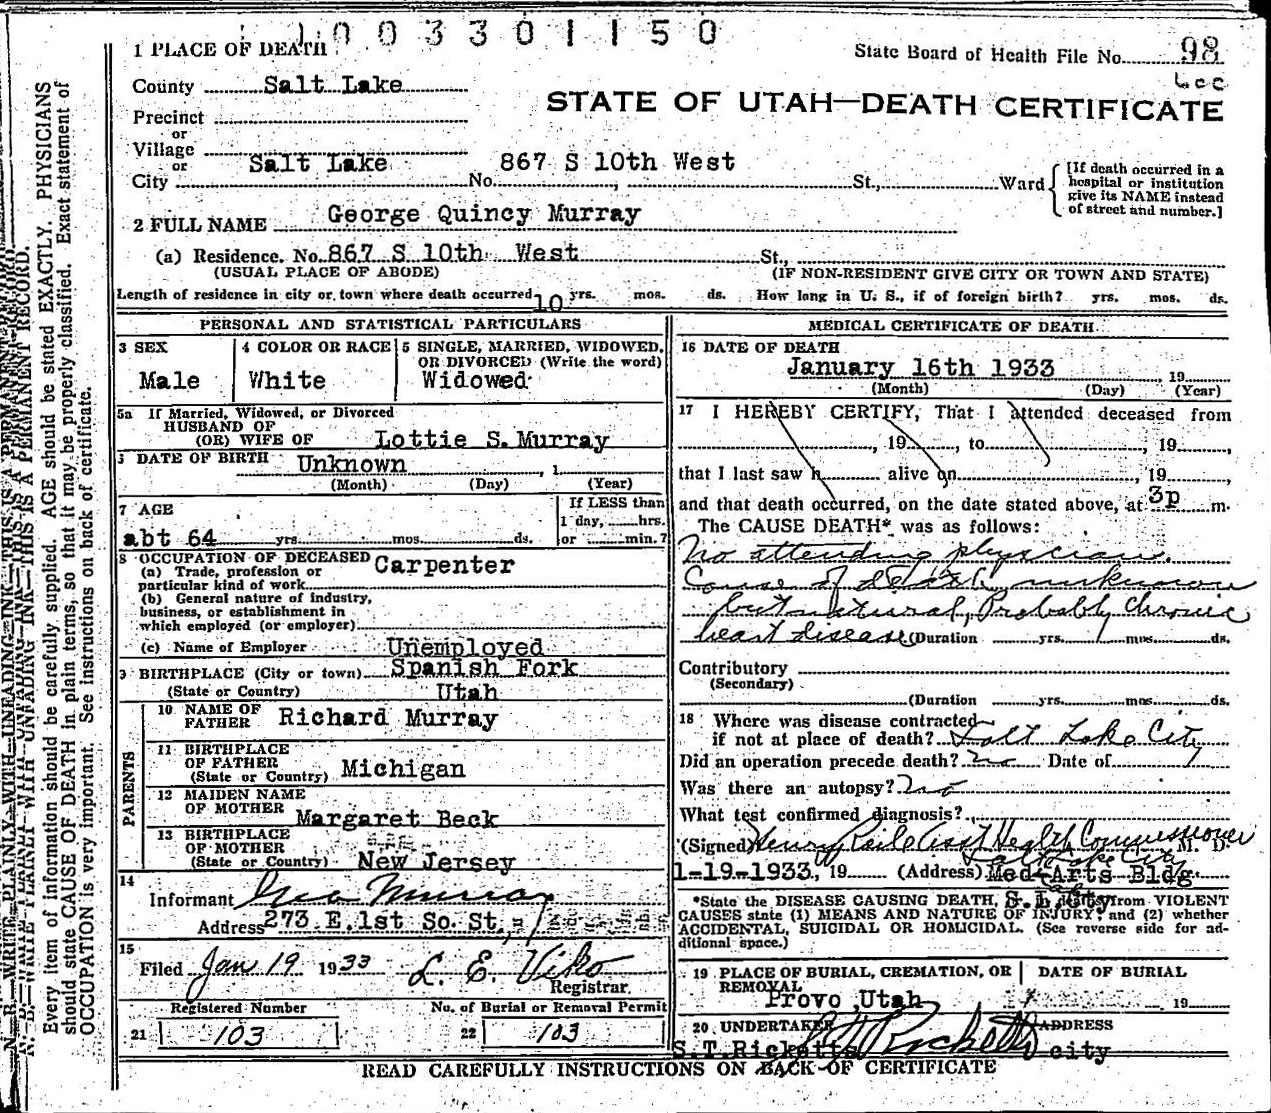 1003301150
1 PLACE OF DEATH
State Board of Health File No. 98
County Salt Lake
STATE OF UTAH—DEATH CERTIFICATE
Precinct
or
Village
or
City Salt Lake No. 867 S 10th West St., Ward
[If death occurred in a
hospital or institution
give its NAME instead
of street and number.]
2 FULL NAME George Quincy Murray
(a) Residence. No. 867 S 10th West St.,
(USUAL PLACE OF ABODE) (IF NON-RESIDENT GIVE CITY OR TOWN AND STATE)
Length of residence in city or town where death occurred 10 yrs. mos. ds. How long in U. S., if of foreign birth? yrs. mos. ds.
PERSONAL AND STATISTICAL PARTICULARS
3 SEX
Male
4 COLOR OR RACE
White
5 SINGLE, MARRIED, WIDOWED,
OR DIVORCED (Write the word)
Widowed
5a If Married, Widowed, or Divorced
HUSBAND OF
(OR) WIFE OF Lottie S. Murray
DATE OF BIRTH Unknown , 1
(Month) (Day) (Year)
7 AGE
abt 64 yrs. mos. ds.
If LESS than
1 day, hrs.
or min.?
8 OCCUPATION OF DECEASED
(a) Trade, profession or
particular kind of work Carpenter
(b) General nature of industry,
business, or establishment in
which employed (or employer)
(c) Name of Employer Unemployed
9 BIRTHPLACE (City or town) Spanish Fork
(State or Country) Utah
PARENTS
10 NAME OF
FATHER Richard Murray
11 BIRTHPLACE
OF FATHER
(State or Country) Michigan
12 MAIDEN NAME
OF MOTHER Margaret Beck
13 BIRTHPLACE
OF MOTHER
(State or Country) New Jersey
14
Informant Murray
Address 273 E. 1st So. St.
15
Filed Jan 19 1933 L. E. Viko
Registrar.
Registered Number
21 103
No. of Burial or Removal Permit
22 103
MEDICAL CERTIFICATE OF DEATH
16 DATE OF DEATH
January 16th 1933 , 19
(Month) (Day) (Year)
17 I HEREBY CERTIFY, That I attended deceased from
, 19 , to , 19 ,
that I last saw h alive on , 19 ,
and that death occurred, on the date stated above, at 3p m.
The CAUSE DEATH* was as follows:
No attending physician.
Cause of death unknown
but natural, Probably chronic
heart disease (Duration yrs. mos. ds.
Contributory
(Secondary)
(Duration yrs. mos. ds.
18 Where was disease contracted
if not at place of death? Salt Lake City
Did an operation precede death? no Date of
Was there an autopsy? no
What test confirmed diagnosis?
(Signed) Henry Asst Health Commissioner M. D.
Salt Lake City
1-19-1933, 19 (Address) Med Arts Bldg.
S. L. City
*State the DISEASE CAUSING DEATH, from VIOLENT
CAUSES state (1) MEANS AND NATURE OF INJURY; and (2) whether
ACCIDENTAL, SUICIDAL OR HOMICIDAL. (See reverse side for ad-
ditional space.)
19 PLACE OF BURIAL, CREMATION, OR
REMOVAL
Provo Utah
DATE OF BURIAL
19
20 UNDERTAKER
S.T.Ricketts
ADDRESS
city
READ CAREFULLY INSTRUCTIONS ON BACK OF CERTIFICATE
N. B.—WRITE PLAINLY WITH UNFADING INK—THIS IS A PERMANENT RECORD.
Every item of information should be carefully supplied. AGE should be stated EXACTLY. PHYSICIANS
should state CAUSE OF DEATH in plain terms, so that it may be properly classified. Exact statement of
OCCUPATION is very important. See instructions on back of certificate.